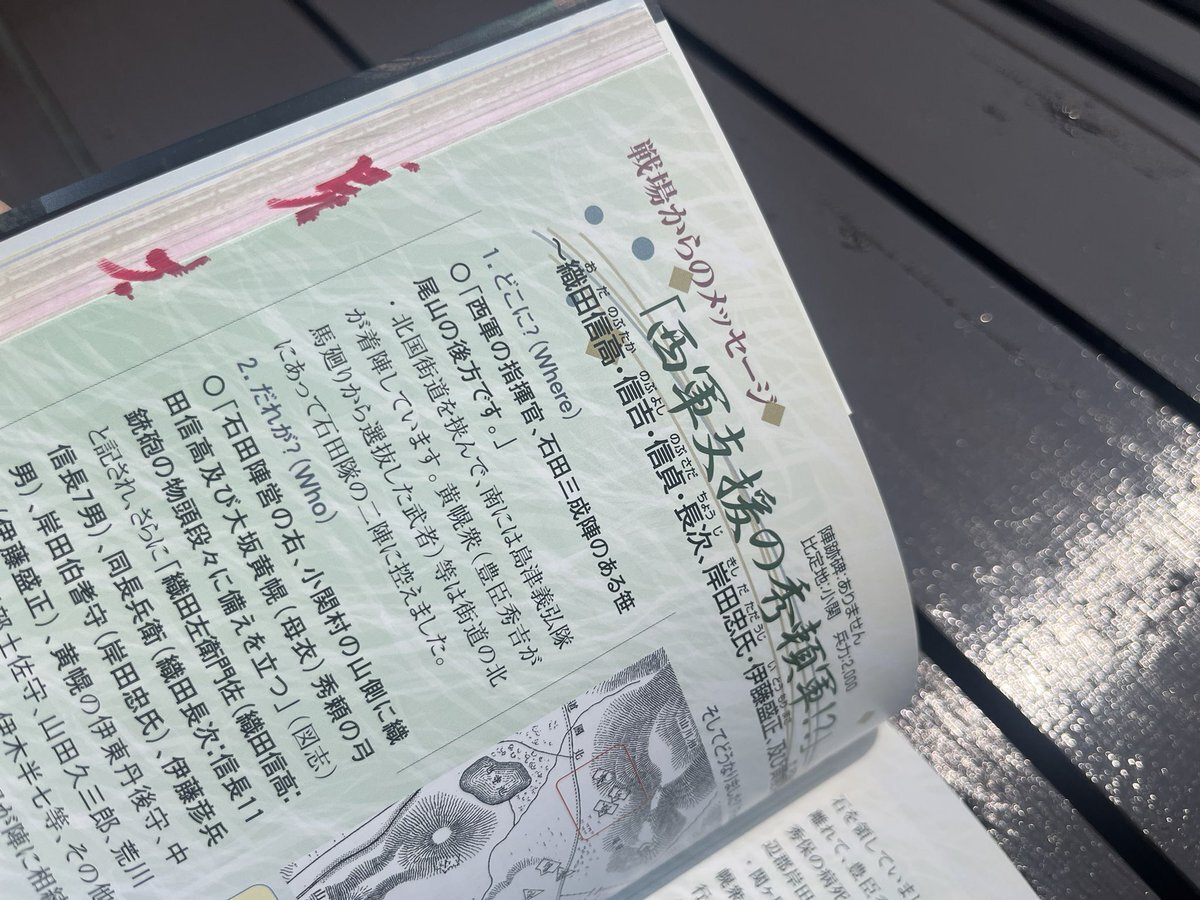 戦場からのメッセージ
「西軍支援の秀頼軍」2
陣跡碑:ありません
比定地:小関 兵力:2,000
～織田信高・信吉・信貞・長次、岸田忠氏・伊藤盛正、
おだ のぶたか のぶよし のぶさだ ちょうじ きしだ ただうじ
1. どこに?(Where)
○「西軍の指揮官、石田三成陣のある笹
尾山の後方です。」
・北国街道を挟んで、南には島津義弘隊
が着陣しています。黄幌衆(豊臣秀吉が
馬廻りから選抜した武者)等は街道の北
にあって石田隊の二陣に控えました。
2. だれが?(Who)
○「石田陣営の右、小関村の山側に織
田信高及び大坂黄幌(母衣)秀頼の弓
銃砲の物頭段々に備えを立つ」(図志)
と記され、さらに「織田左衛門佐(織田信高:
信長7男)、同長兵衛(織田長次:信長11
男)、岸田伯耆守(岸田忠氏)、伊藤彦兵
(伊藤盛正)、黄幌の伊東丹後守、中
部士佐守、山田久三郎、荒川
伊木半七等、その他
が陣に相続
そしてどうなりました
道
國
北
石を領していまし
離れて、豊臣
秀保の病死
辺郡岸田
・関ケ
幌衆
行